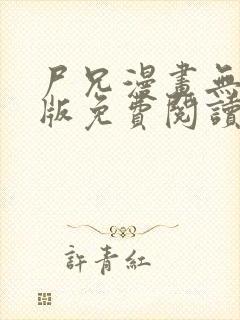 尸兄漫畫無
版免費閱讀
許青紅